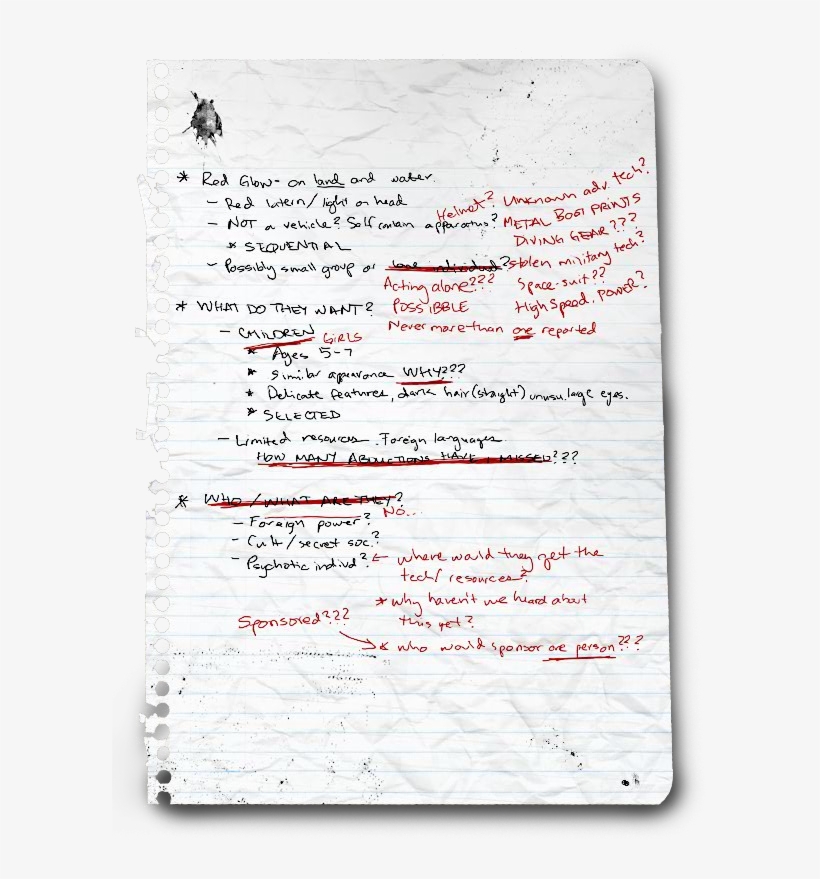 * Red Glow- on land and water.
- Red latern/light on head
Helmet?
Unknown adv. tech?
- NOT a vehicle? Self contain apparatus?
METAL BOOT PRINTS
* SEQUENTIAL
DIVING GEAR???
- Possibly small group or lone individual?
Stolen military tech?
Acting alone???
Space-suit??
POSSIBBLE
High Speed. POWER?
Never more than one reported
* WHAT DO THEY WANT?
- CHILDREN GIRLS
* Ages 5-7
* Similar apearance WHY???
* Delicate features, dark hair(staight) unusu. large eyes.
* SELECTED
- Limited resources. Foreign languages.
HOW MANY ABDUCTIONS HAVE I MISSED???
* WHO/WHAT ARE THEY?
NO...
- Foraign power?
- Cult/secret soc.?
- Psychotic individ?
← where would they get the
tech/resources?
* why haven't we heard about
this yet?
Sponsored???
* who would sponsor one person???